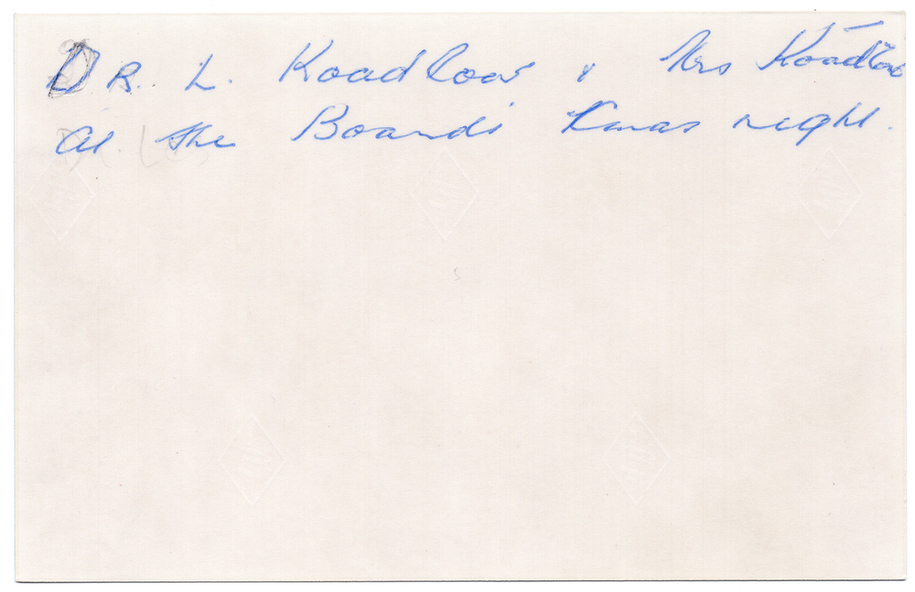 DR. L. Koadlow & Mrs Koadlow
at the Boards Xmas night.